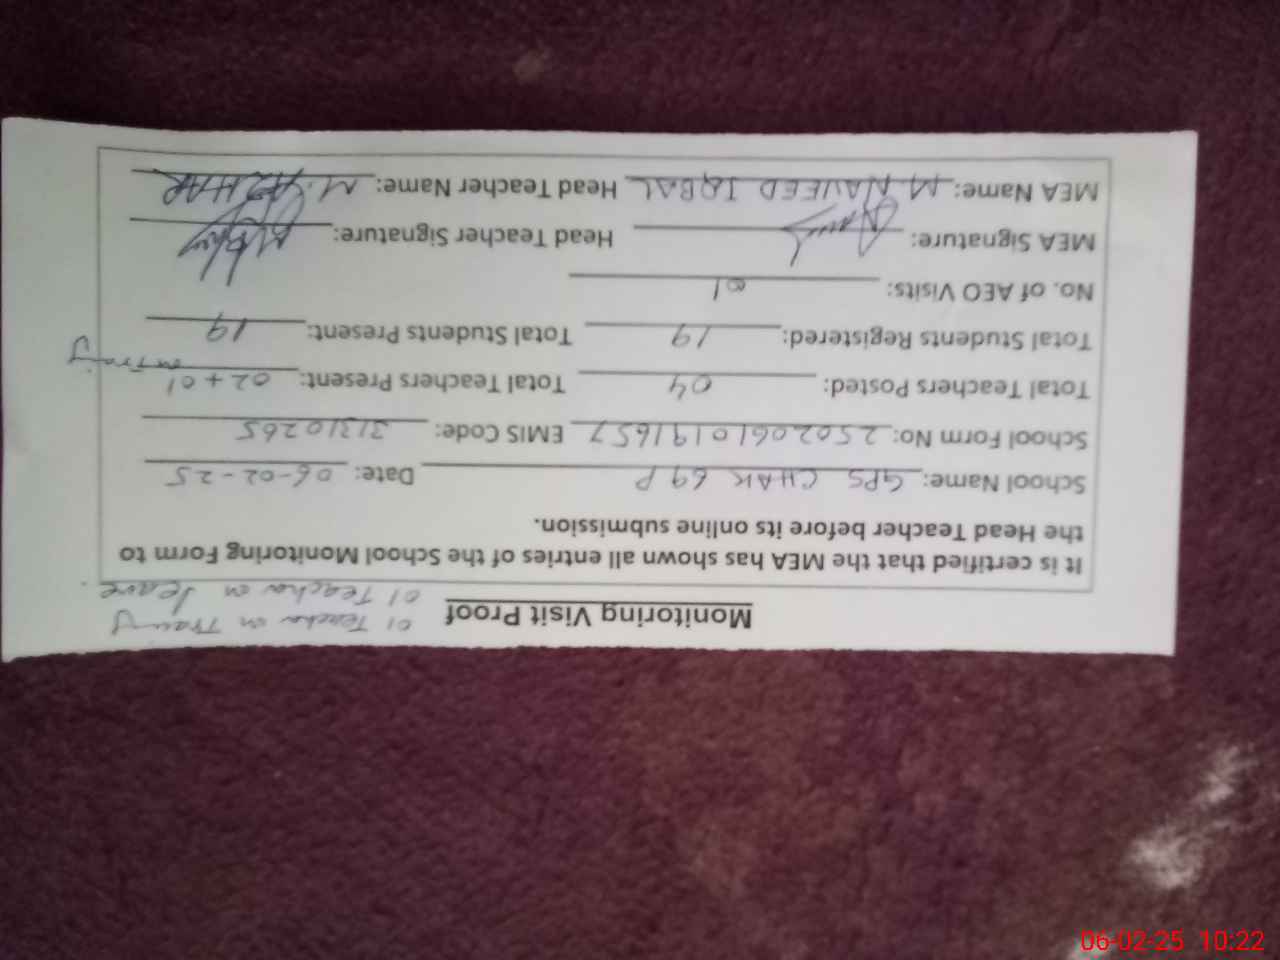 Monitoring Visit Proof
01 Teacher on Training
01 Teacher on leave.
It is certified that the MEA has shown all entries of the School Monitoring Form to
the Head Teacher before its online submission.
School Name: GPS CHAK 69 P Date: 06-02-25
School Form No: 250206101916 57 EMIS Code: 31310265
Total Teachers Posted: 04 Total Teachers Present: 02 + 01 on Training
Total Students Registered: 19 Total Students Present: 19
No. of AEO Visits: 01
MEA Signature: Head Teacher Signature:
MEA Name: M. NAVEED IQBAL Head Teacher Name: M. AZHAR
06-02-25 10:22